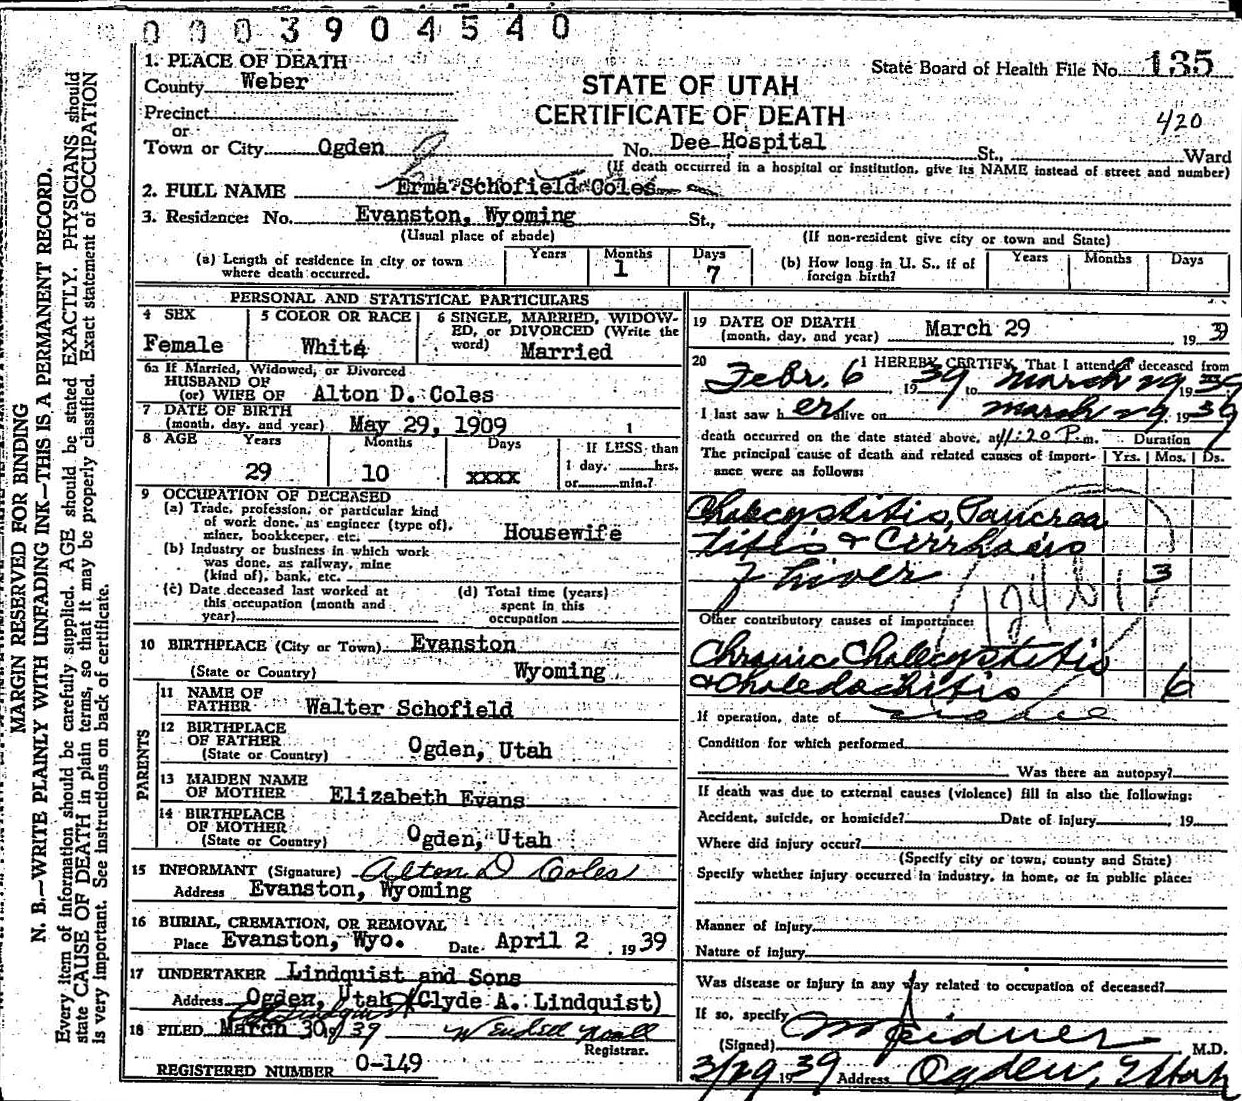 0003904540
MARGIN RESERVED FOR BINDING
N. B.—WRITE PLAINLY WITH UNFADING INK—THIS IS A PERMANENT RECORD.
Every item of information should be carefully supplied. AGE should be stated EXACTLY. PHYSICIANS should
state CAUSE OF DEATH in plain terms, so that it may be properly classified. Exact statement of OCCUPATION
is very important. See instructions on back of certificate.
State Board of Health File No. 135
STATE OF UTAH
CERTIFICATE OF DEATH
420
1. PLACE OF DEATH
County Weber
Precinct
or
Town or City Ogden No. Dee Hospital St., Ward
(If death occurred in a hospital or institution, give its NAME instead of street and number)
2. FULL NAME Erma Schofield Coles
3. Residence: No. Evanston, Wyoming St.,
(Usual place of abode) (If non-resident give city or town and State)
(a) Length of residence in city or town where death occurred. Years Months 1 Days 7
(b) How long in U. S., if of foreign birth? Years Months Days
PERSONAL AND STATISTICAL PARTICULARS
4 SEX Female
5 COLOR OR RACE White
6 SINGLE, MARRIED, WIDOWED, or DIVORCED (Write the word) Married
6a If Married, Widowed, or Divorced
HUSBAND OF
(or) WIFE OF Alton D. Coles
7 DATE OF BIRTH
(month, day, and year) May 29, 1909
8 AGE Years 29 Months 10 Days xxxx
If LESS than
1 day, hrs.
or min.?
9 OCCUPATION OF DECEASED
(a) Trade, profession, or particular kind
of work done, as engineer (type of),
miner, bookkeeper, etc. Housewife
(b) Industry or business in which work
was done, as railway, mine
(kind of), bank, etc.
(c) Date deceased last worked at
this occupation (month and
year)
(d) Total time (years)
spent in this
occupation
10 BIRTHPLACE (City or Town) Evanston
(State or Country) Wyoming
PARENTS
11 NAME OF
FATHER Walter Schofield
12 BIRTHPLACE
OF FATHER
(State or Country) Ogden, Utah
13 MAIDEN NAME
OF MOTHER Elizabeth Evans
14 BIRTHPLACE
OF MOTHER
(State or Country) Ogden, Utah
15 INFORMANT (Signature) Alton D Coles
Address Evanston, Wyoming
16 BURIAL, CREMATION, OR REMOVAL
Place Evanston, Wyo. Date April 2, 1939
17 UNDERTAKER Lindquist and Sons
Address Ogden, Utah (Clyde A. Lindquist)
18 FILED March 30 1939
Registrar.
REGISTERED NUMBER 0-149
19 DATE OF DEATH
(month, day, and year) March 29 1939
20 I HEREBY CERTIFY, That I attended deceased from
Febr. 6 1939 to March 29 1939
I last saw her alive on March 29, 1939
death occurred on the date stated above, at 11:20 P. m.
The principal cause of death and related causes of importance were as follows:
Duration
Yrs. Mos. Ds.
Cholecystitis, Pancrea
titis & Cirrhosis
of Liver 3
Other contributory causes of importance:
Chronic Cholecystitis
& Choledochitis 6
If operation, date of none
Condition for which performed
Was there an autopsy?
If death was due to external causes (violence) fill in also the following:
Accident, suicide, or homicide? Date of injury , 19
Where did injury occur?
(Specify city or town, county and State)
Specify whether injury occurred in industry, in home, or in public place:
Manner of injury
Nature of injury
Was disease or injury in any way related to occupation of deceased?
If so, specify
(Signed) M.D.
3/29 1939 Address Ogden, Utah